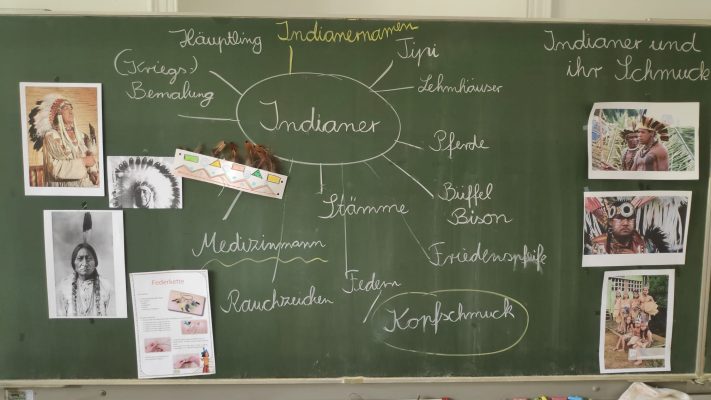 Häuptling
Indianernamen
Tipi
Indianer und
ihr Schmuck
(Kriegs-)
Bemalung
Lehmhäuser
Indianer
Pferde
Büffel
Bison
Stämme
Medizinmann
Friedenspfeife
Rauchzeichen
Federn
Kopfschmuck
Federkette